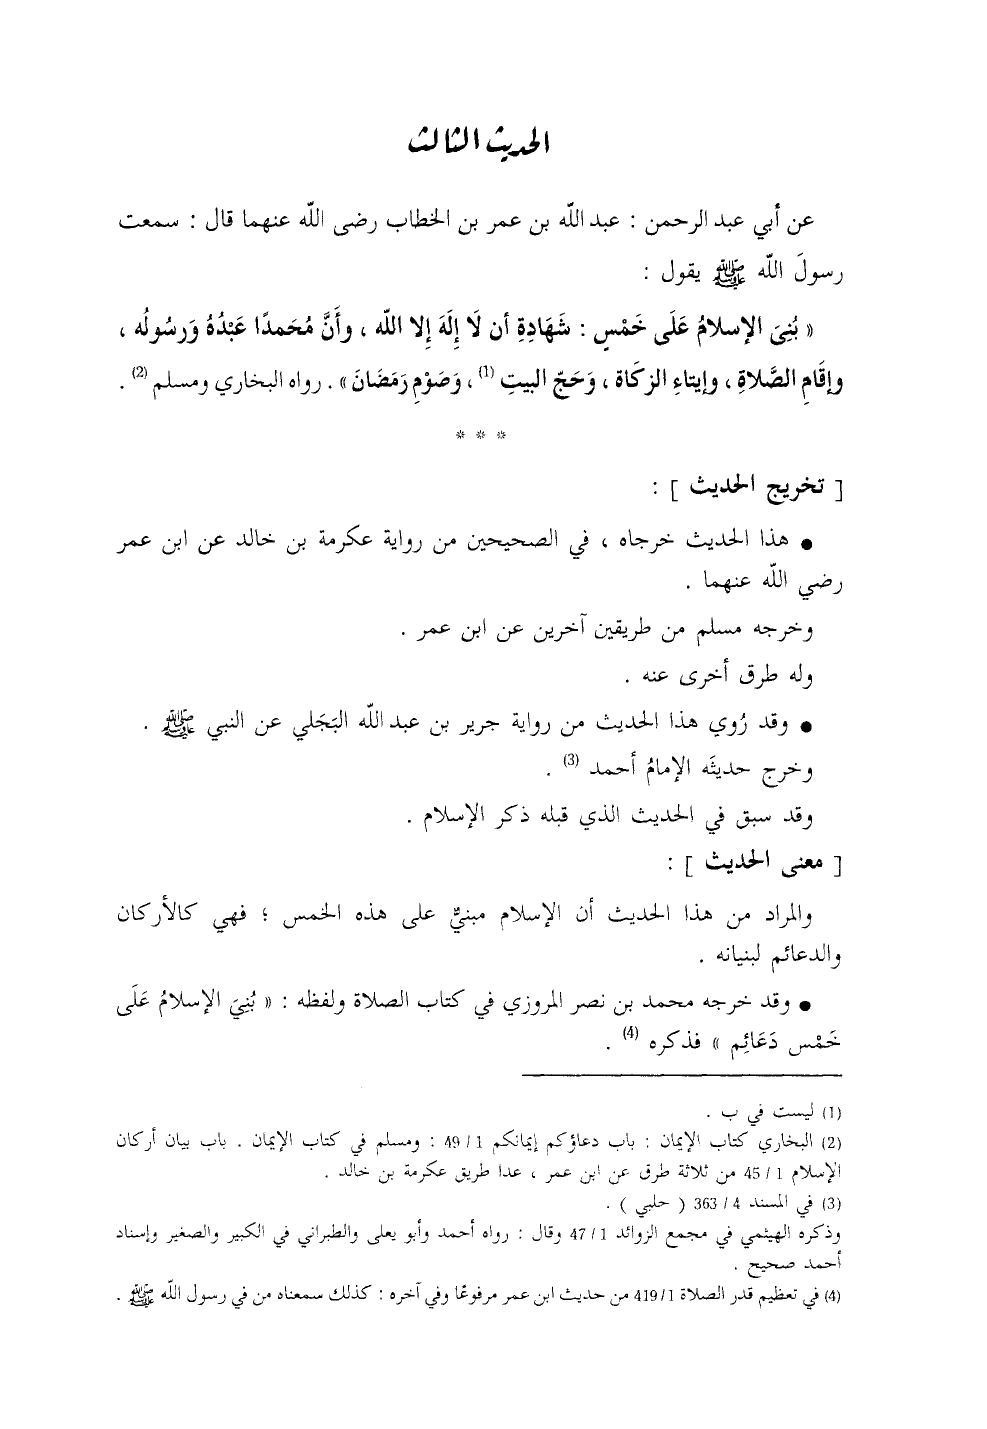 الحديث الثالث
عن أبي عبد الرحمن : عبد الله بن عمر بن الخطاب رضى الله عنهما قال : سمعت
رسولَ الله ﷺ يقول :
« بُنِىَ الإسلامُ عَلَى خَمْسٍ : شَهَادِةِ أن لَا إِلَهَ إِلا الله ، وأَنَّ مُحَمدًا عَبْدُهُ وَرسُولُه ،
وإقَامِ الصَّلاةِ ، وإيتاءِ الزكَاة ، وَحَجّ البيتِ (1) ، وَصَوْمِ رَمَضَانَ » . رواه البخاري ومسلم (2) .
* * *
[ تخريج الحديث ] :
● هذا الحديث خرجاه ، في الصحيحين من رواية عكرمة بن خالد عن ابن عمر
رضي الله عنهما .
وخرجه مسلم من طريقين آخرين عن ابن عمر .
وله طرق أخرى عنه .
● وقد رُوي هذا الحديث من رواية جرير بن عبد الله البَجَلي عن النبي ﷺ .
وخرج حديثَه الإمامُ أحمد (3) .
وقد سبق في الحديث الذي قبله ذكر الإسلام .
[ معنى الحديث ] :
والمراد من هذا الحديث أن الإسلام مبنيٌّ على هذه الخمس ؛ فهي كالأركان
والدعائم لبنيانه .
● وقد خرجه محمد بن نصر المروزي في كتاب الصلاة ولفظه : « بُنِيَ الإسلامُ عَلَى
خَمْس دَعَائِم » فذكره (4) .
(1) ليست في ب .
(2) البخاري كتاب الإيمان : باب دعاؤكم إيمانكم 1 / 49 : ومسلم في كتاب الإيمان . باب بيان أركان
الإسلام 1 / 45 من ثلاثة طرق عن ابن عمر ، عدا طريق عكرمة بن خالد .
(3) في المسند 4 / 363 ( حلبي ) .
وذكره الهيثمي في مجمع الزوائد 1 / 47 وقال : رواه أحمد وأبو يعلى والطبراني في الكبير والصغير وإسناد
أحمد صحيح .
(4) في تعظيم قدر الصلاة 1 / 419 من حديث ابن عمر مرفوعًا وفي آخره : كذلك سمعناه من في رسول الله ﷺ .